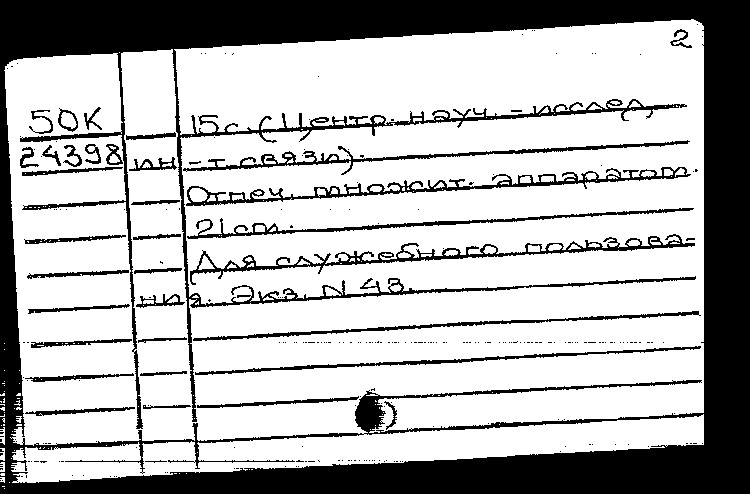 2
50К 15с. (Центр. науч.-исслед.
24398 ин-т связи).
Отпеч. множит. аппаратом.
21см.
Для служебного пользова-
ния. Экз. N 43.